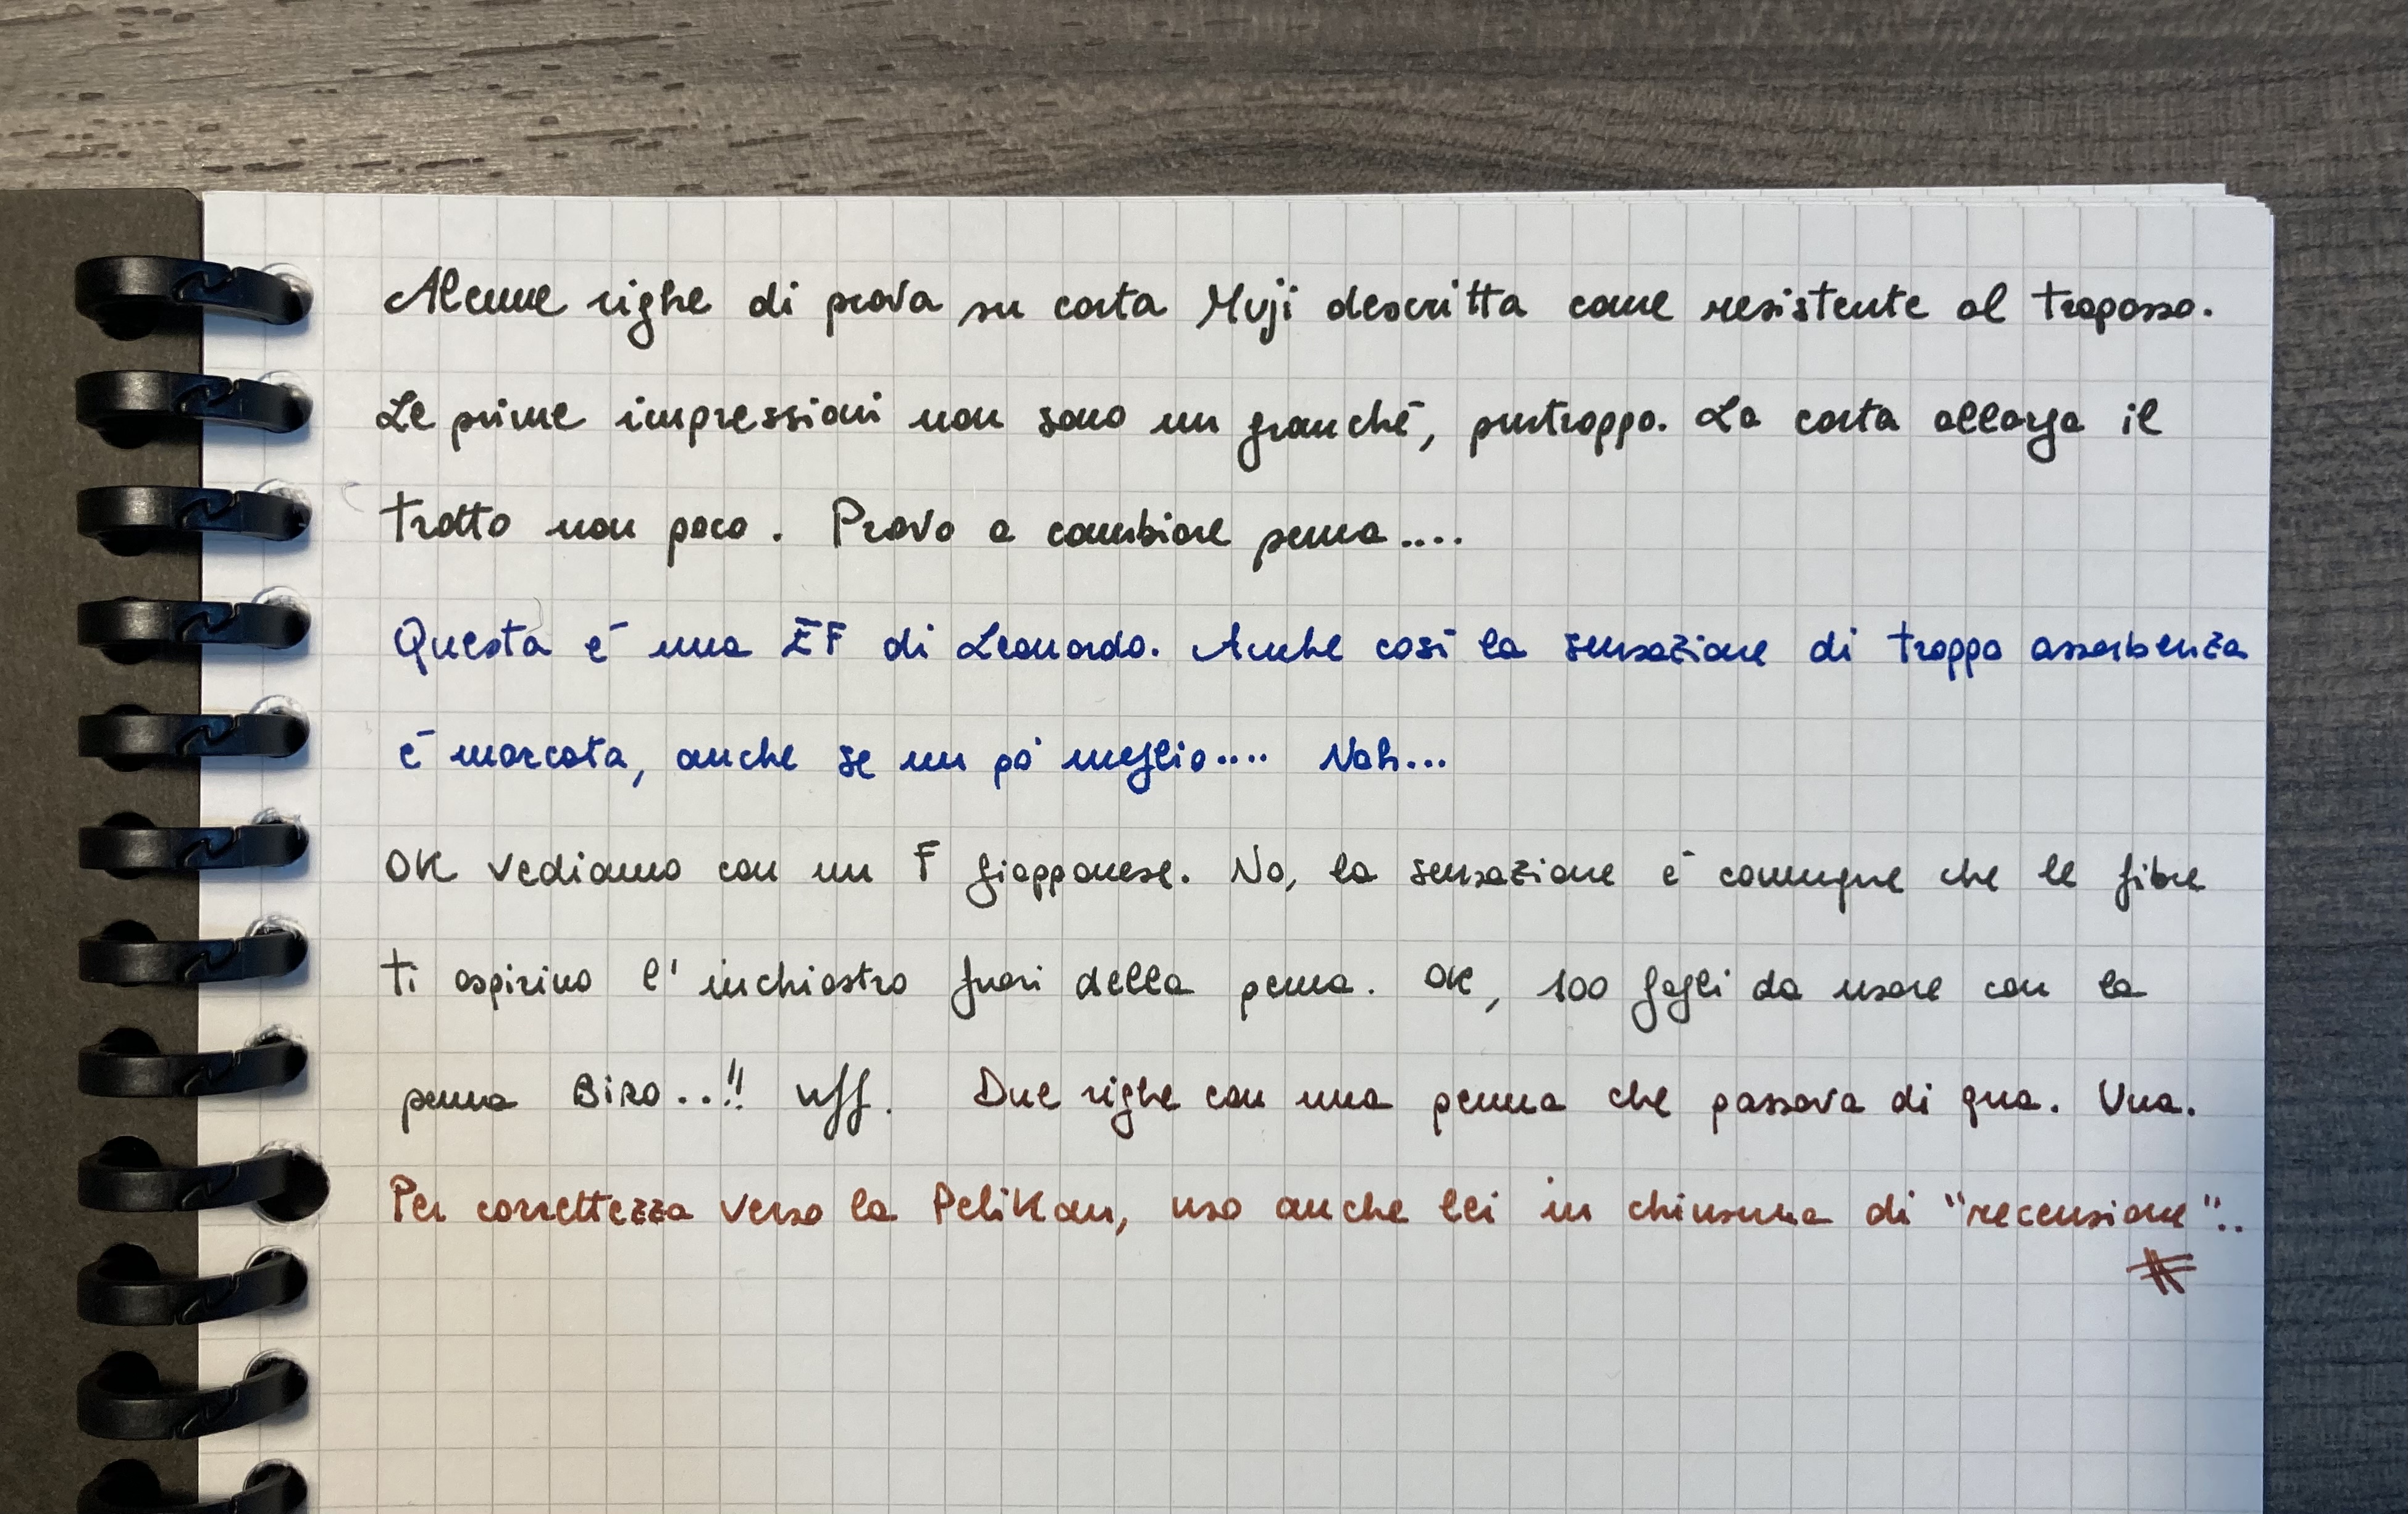 Alcune righe di prova su carta Muji descritta come resistente al trapasso.
Le prime impressioni non sono un granché, purtroppo. La carta allarga il
tratto non poco. Provo a cambiare penna....
Questa é una EF di Leonardo. Anche così la sensazione di troppa assorbenza
é marcata, anche se un pò meglio.... Nah...
OK vediamo con un F giapponese. No, la sensazione é comunque che le fibre
ti aspirino l'inchiostro fuori della penna. OK, 100 fogli da usare con la
penna BIRO..!! uff. Due righe con una penna che passava di qua. Una.
Per correttezza verso la Pelikan, uso anche lei in chiusura di "recensione"..